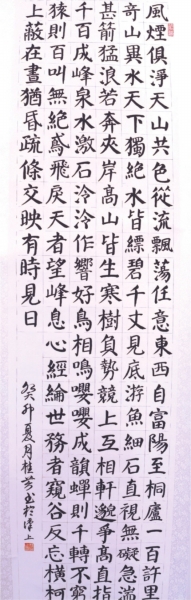 風煙俱淨天山共色從流飄蕩任意東西自富陽至桐廬一百許里
奇山異水天下獨絕水皆縹碧千丈見底游魚細石直視無礙急湍
甚箭猛浪若奔夾岸高山皆生寒樹負勢競上互相軒邈爭高直指
千百成峰泉水激石泠泠作響好鳥相鳴嚶嚶成韻蟬則千轉不窮
猿則百叫無絕鳶飛戾天者望峰息心經綸世務者窺谷反忘橫柯
上蔽在晝猶昏疏條交映有時見日
癸卯夏月桂